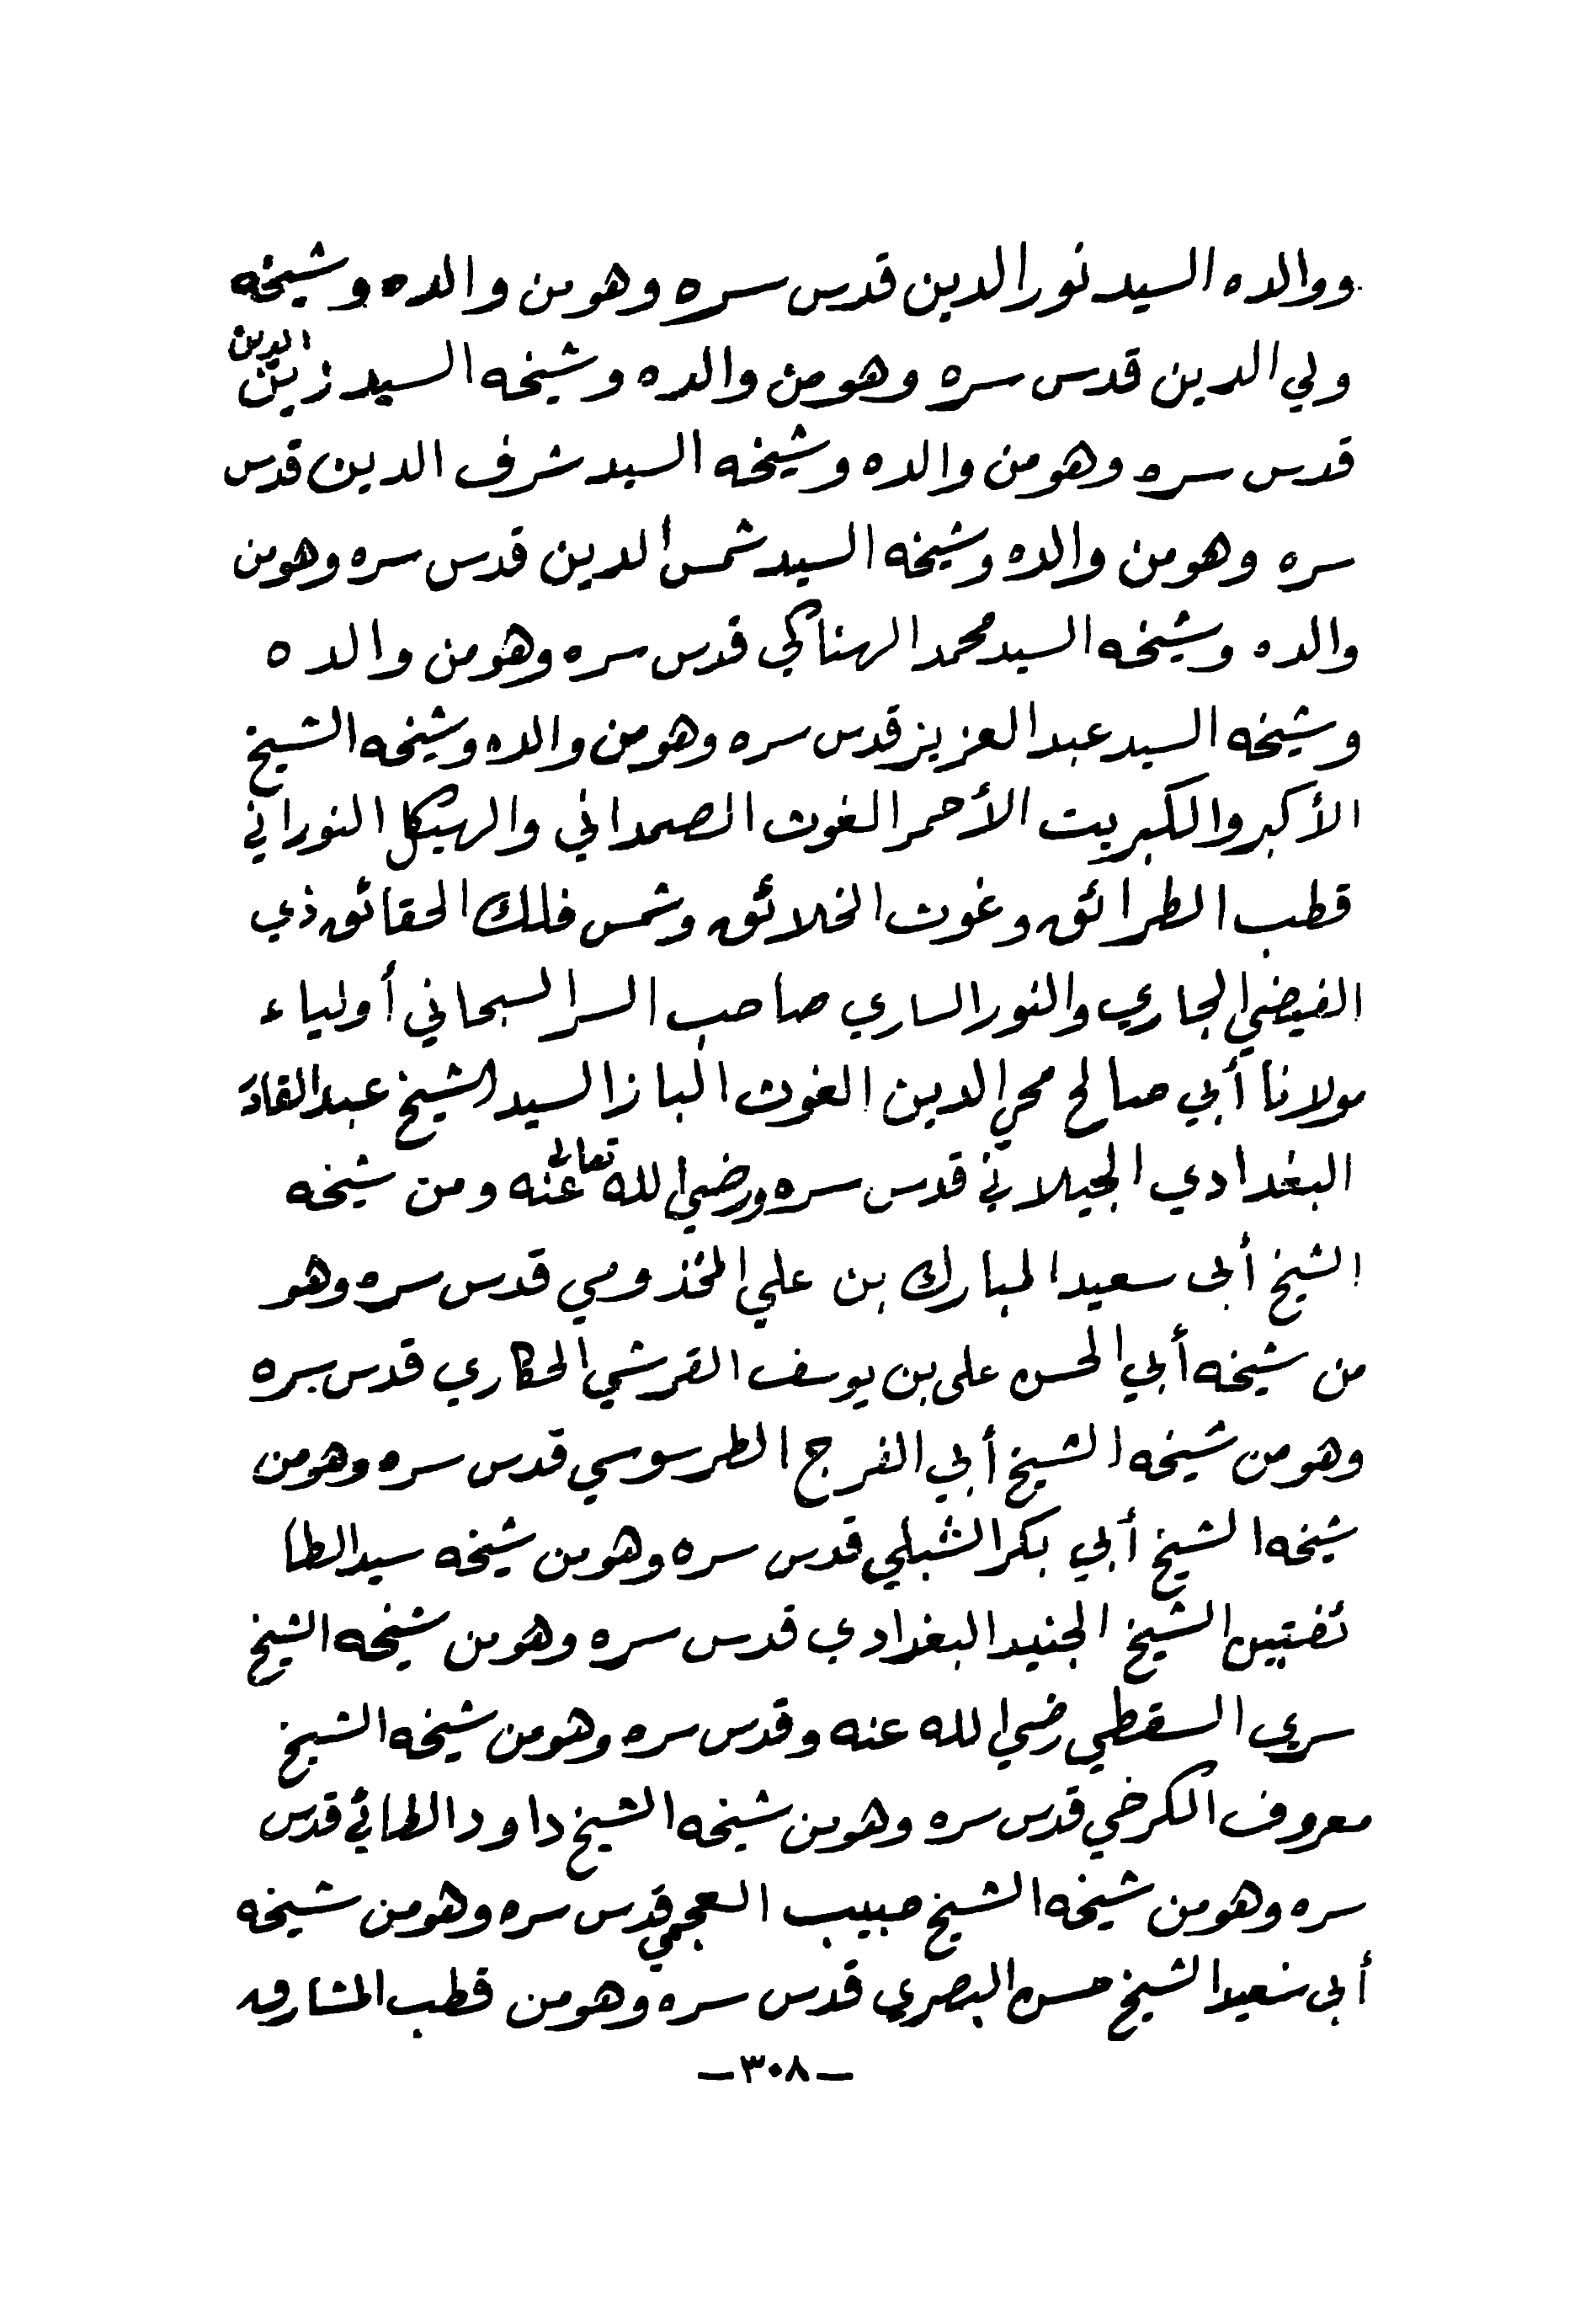 ووالده السيد نور الدين قدس سره وهو من والده وشيخه
ولي الدين قدس سره وهو من والده وشيخه السيد زين الدين
قدس سره وهو من والده وشيخه السيد شرف الدين قدس
سره وهو من والده وشيخه السيد شمس الدين قدس سره وهو من
والده وشيخه السيد محمد الهتاكي قدس سره وهو من والده
وشيخه السيد عبد العزيز قدس سره وهو من والده وشيخه الشيخ
الأكبر والكبريت الأحمر الغوث الصمداني والهيكل النوراني
قطب الطرائق وغوث الخلائق وشمس فلك الحقائق ذي
الفيضي الجاري والنور الساري صاحب السر السبحاني أولياء
مولانا أبي صالح محي الدين الغوث الباز السيد الشيخ عبد القادر
البغدادي الجيلاني قدس سره ورضي الله تعالى عنه ومن شيخه
الشيخ أبى سعيد المبارك بن علي المخذومي قدس سره وهو
من شيخه أبي الحسن على بن يوسف القرشي الحكاري قدس سره
وهو من شيخه الشيخ أبي الفرج الطرسوسي قدس سره وهو من
شيخه الشيخ أبي بكر الشبلي قدس سره وهو من شيخه سيد الطا
ئفتين الشيخ الجنيد البغدادي قدس سره وهو من شيخه الشيخ
سري السقطي رضي الله عنه وقدس سره وهو من شيخه الشيخ
معروف الكرخي قدس سره وهو من شيخه الشيخ داود الطائي قدس
سره وهو من شيخه الشيخ حبيب العجمي قدس سره وهو من شيخه
أبى سعيد الشيخ حسن البصري قدس سره وهو من قطب المشارق
–٣٠٨–